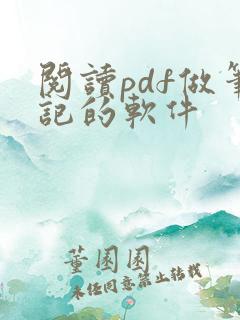 閱讀pdf做筆
記的軟件
董園園
未经同意禁止转载